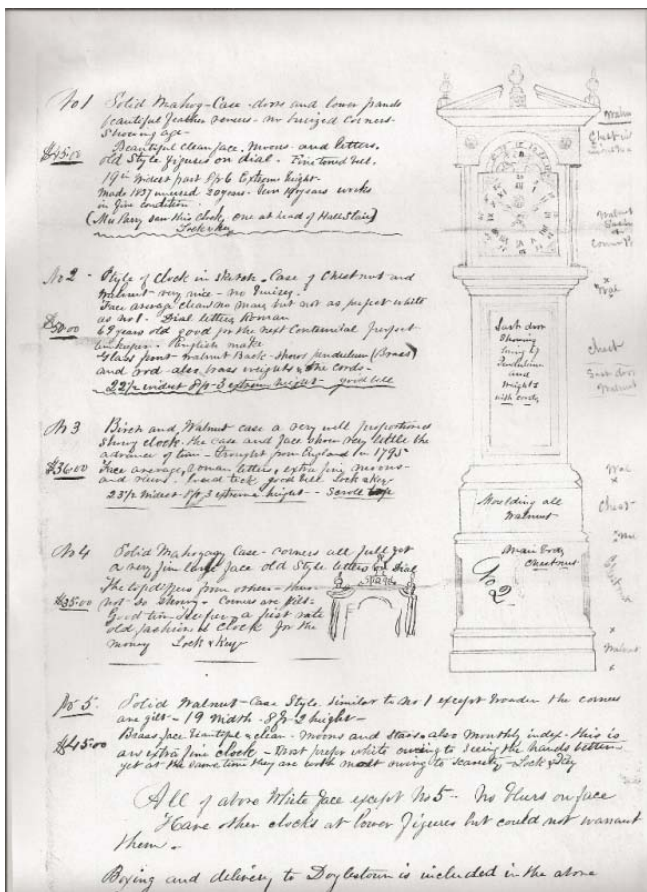 No 1 Solid Mahog-Case-doors and lower panels
beautiful feather veneers - no bruized corners-
Showing age-
$45.00 Beautiful clean face, moons and letters,
old Style figures on dial. Fine toned bell.
19 in widest part 8 ft 6 Extreme height-
Made 1837 unused 20 years. years works
in fine condition.
(Mr Parry saw this Clock, one at head of Hall Stair)
Lock & Key
No 2 - Style of Clock in sketch. Case of Chestnut and
Walnut - very nice - no
Face average clean no mars but not as perfect white
as no 1. Dial letters Roman
$50.00 69 years old good for the next Centennial perfect
timekeeper. English make
Glass front - walnut Back - shows pendulum (Brass)
and rod - also brass weights & the cords -
22 1/2 widest 8 ft - 3 extreme height - good bell
No 3 Birch and Walnut case a very well proportioned
showy clock. the case and face show very little the
advance of time - brought from England in 1795
$36.00 Face average, roman letters, extra fine moons
and bell. Lock & Key
23 1/2 widest 8 ft 3 extreme height - Scroll top
No 4 Solid Mahogany Case - corners all full yet
a very fine large face old Style letters on Dial
The top differs from others - thus
$35.00 not so showy. Corners are gilt -
Good time keeper, a first rate
old fashioned Clock for the
money Lock & Key
No 5. Solid Walnut-Case Style similar to No 1 except broader the corners
are gilt - 19 width - 8 ft 2 height -
$45.00 Brass face beautiful & clean - moons and stars, also monthly index - this is
an extra fine clock - Most prefer white owing to seeing the hands better
yet at the same time they are worth most owing to scarcity - Lock & Key
All of above White face except No 5 - No blurs on face
Have other clocks at lower figures but could not warrant
them -
Boxing and delivery to Doylestown is included in the above
Glass door
Showing
Swing of
Pendulum
and
Weights
with cords
Moulding all
Walnut
Main Body
Chestnut
No 2
Walnut
Wal
Chest
Walnut
Wal
Chest
Chestnut
Walnut